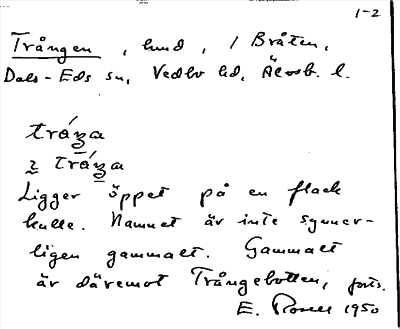 1-2
Trången, hmd, / Bråten,
Dals-Eds sn, Vedbo hd, Älvsb. l.
tráŋa
2 tráŋa
Ligger öppet på en flack
kulle. Namnet är inte synner-
ligen gammalt. Gammalt
är däremot Trångebotten, forts.
E. Rosell 1950